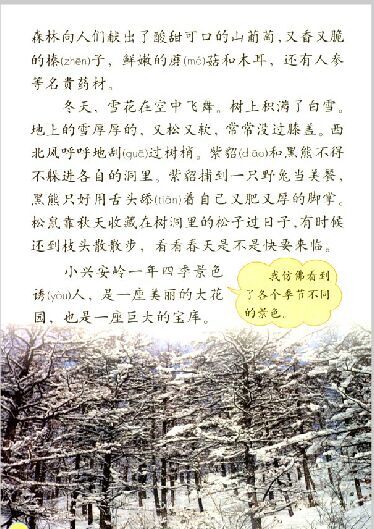 森林向人们献出了酸甜可口的山葡萄,又香又脆
的榛(zhēn)子,鲜嫩的蘑(mó)菇和木耳,还有人参
等名贵药材。
冬天,雪花在空中飞舞。树上积满了白雪。
地上的雪厚厚的,又松又软,常常没过膝盖。西
北风呼呼地刮(guā)过树梢。紫貂(diāo)和黑熊不得
不躲进各自的洞里。紫貂捕到一只野兔当美餐,
黑熊只好用舌头舔(tiǎn)着自己又肥又厚的脚掌。
松鼠靠秋天收藏在树洞里的松子过日子,有时候
还到枝头散散步,看看春天是不是快要来临。
小兴安岭一年四季景色
诱(yòu)人,是一座美丽的大花
园,也是一座巨大的宝库。
我仿佛看到
了各个季节不同
的景色。